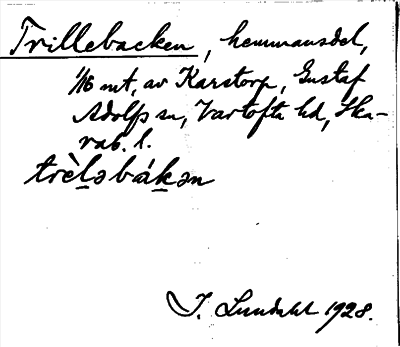 Trillebacken, hemmansdel,
1/16 mt, av Karstorp, Gustaf
Adolfs sn, Vartofta hd, Ska-
rab. l.
trèləbákən
I. Lundahl 1928.